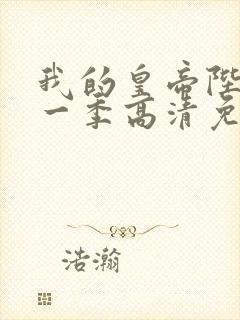 我的皇帝陛
一季高清免
浩瀚